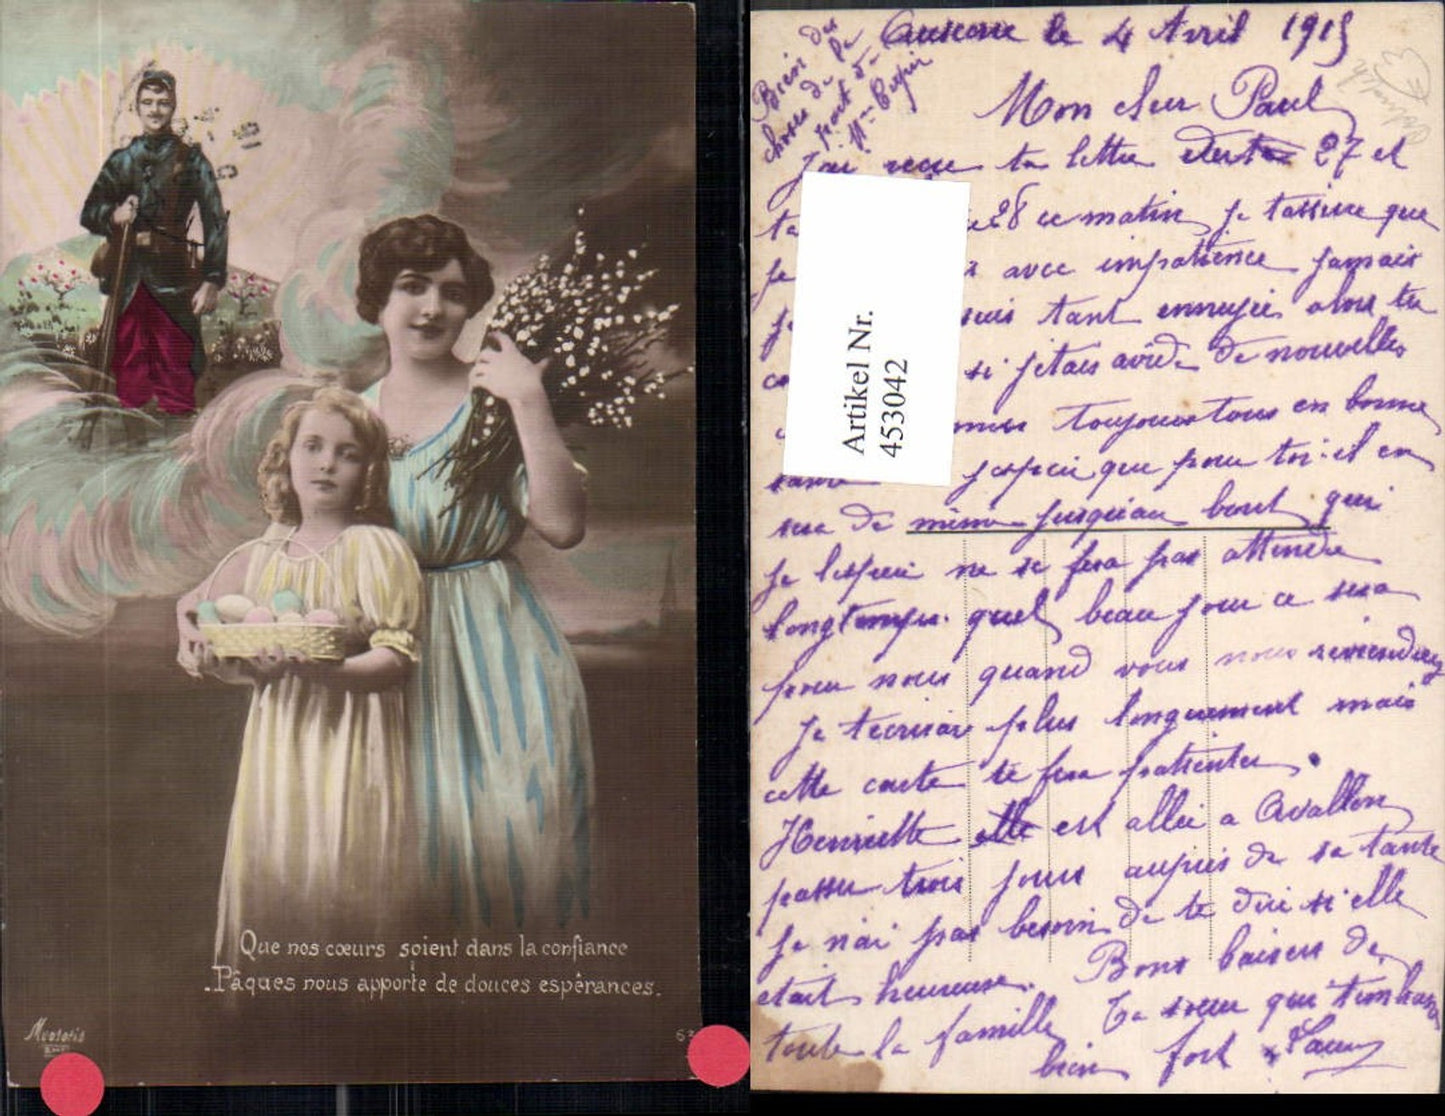 Que nos cœurs soient dans la confiance
Pâques nous apporte de douces espérances.
Artikel Nr.
453042
Bien des
choses de la
part de
Mme
le 4 Avril 1915
Mon cher Paul
J'ai reçue ta lettre 27 et
ta 28 ce matin je t'assure que
je avec impatience jamais
suis tant ennuyée alors tu
si j'étais avide de nouvelles
toujours tous en bonne
santé j'espère que pour toi il en
sera de même jusqu'au bout qui
je l'espère ne se fera pas attendre
longtemps. quel beau jour ce sera
pour nous quand vous nous reviendrez
Je t'écrirai plus longuement mais
cette carte te fera patienter.
Henriette est allée a Avallon
passer trois jours auprès de sa tante
Je n'ai pas besoin de te dire si elle
était heureuse. Bons baisers de
toute la famille Ta sœur qui t'embrasse
bien fort